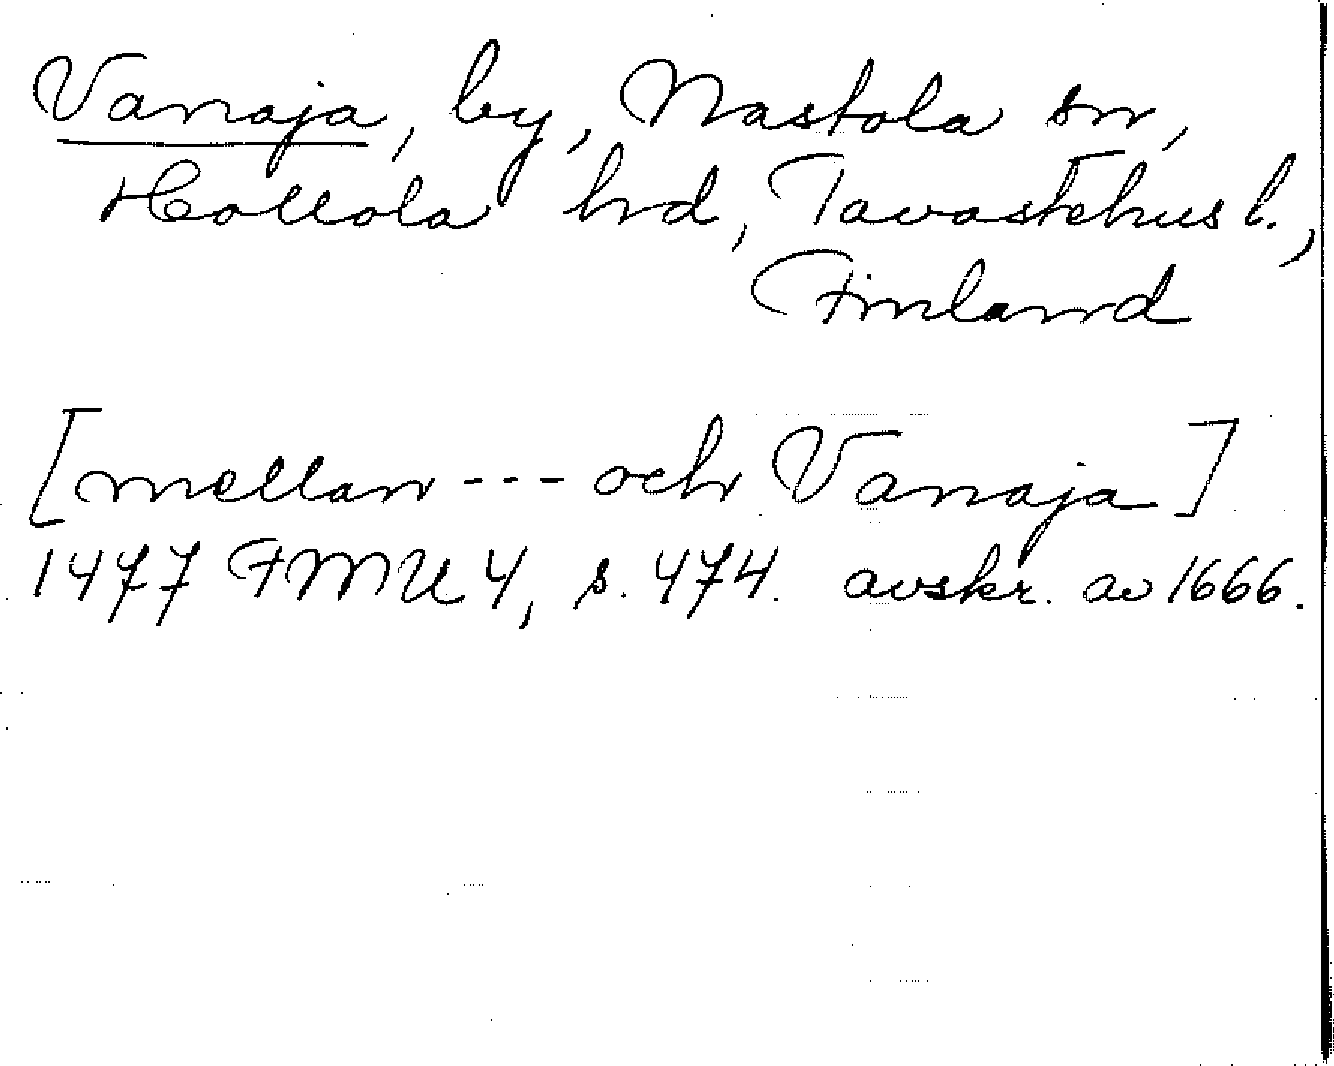 Vanaja, by, Nastola sn,
Hollola hrd, Tavastehus l.,
Finland
[mellan --- och Vanaja]
1477 FMU 4, s. 474. avskr. av 1666.